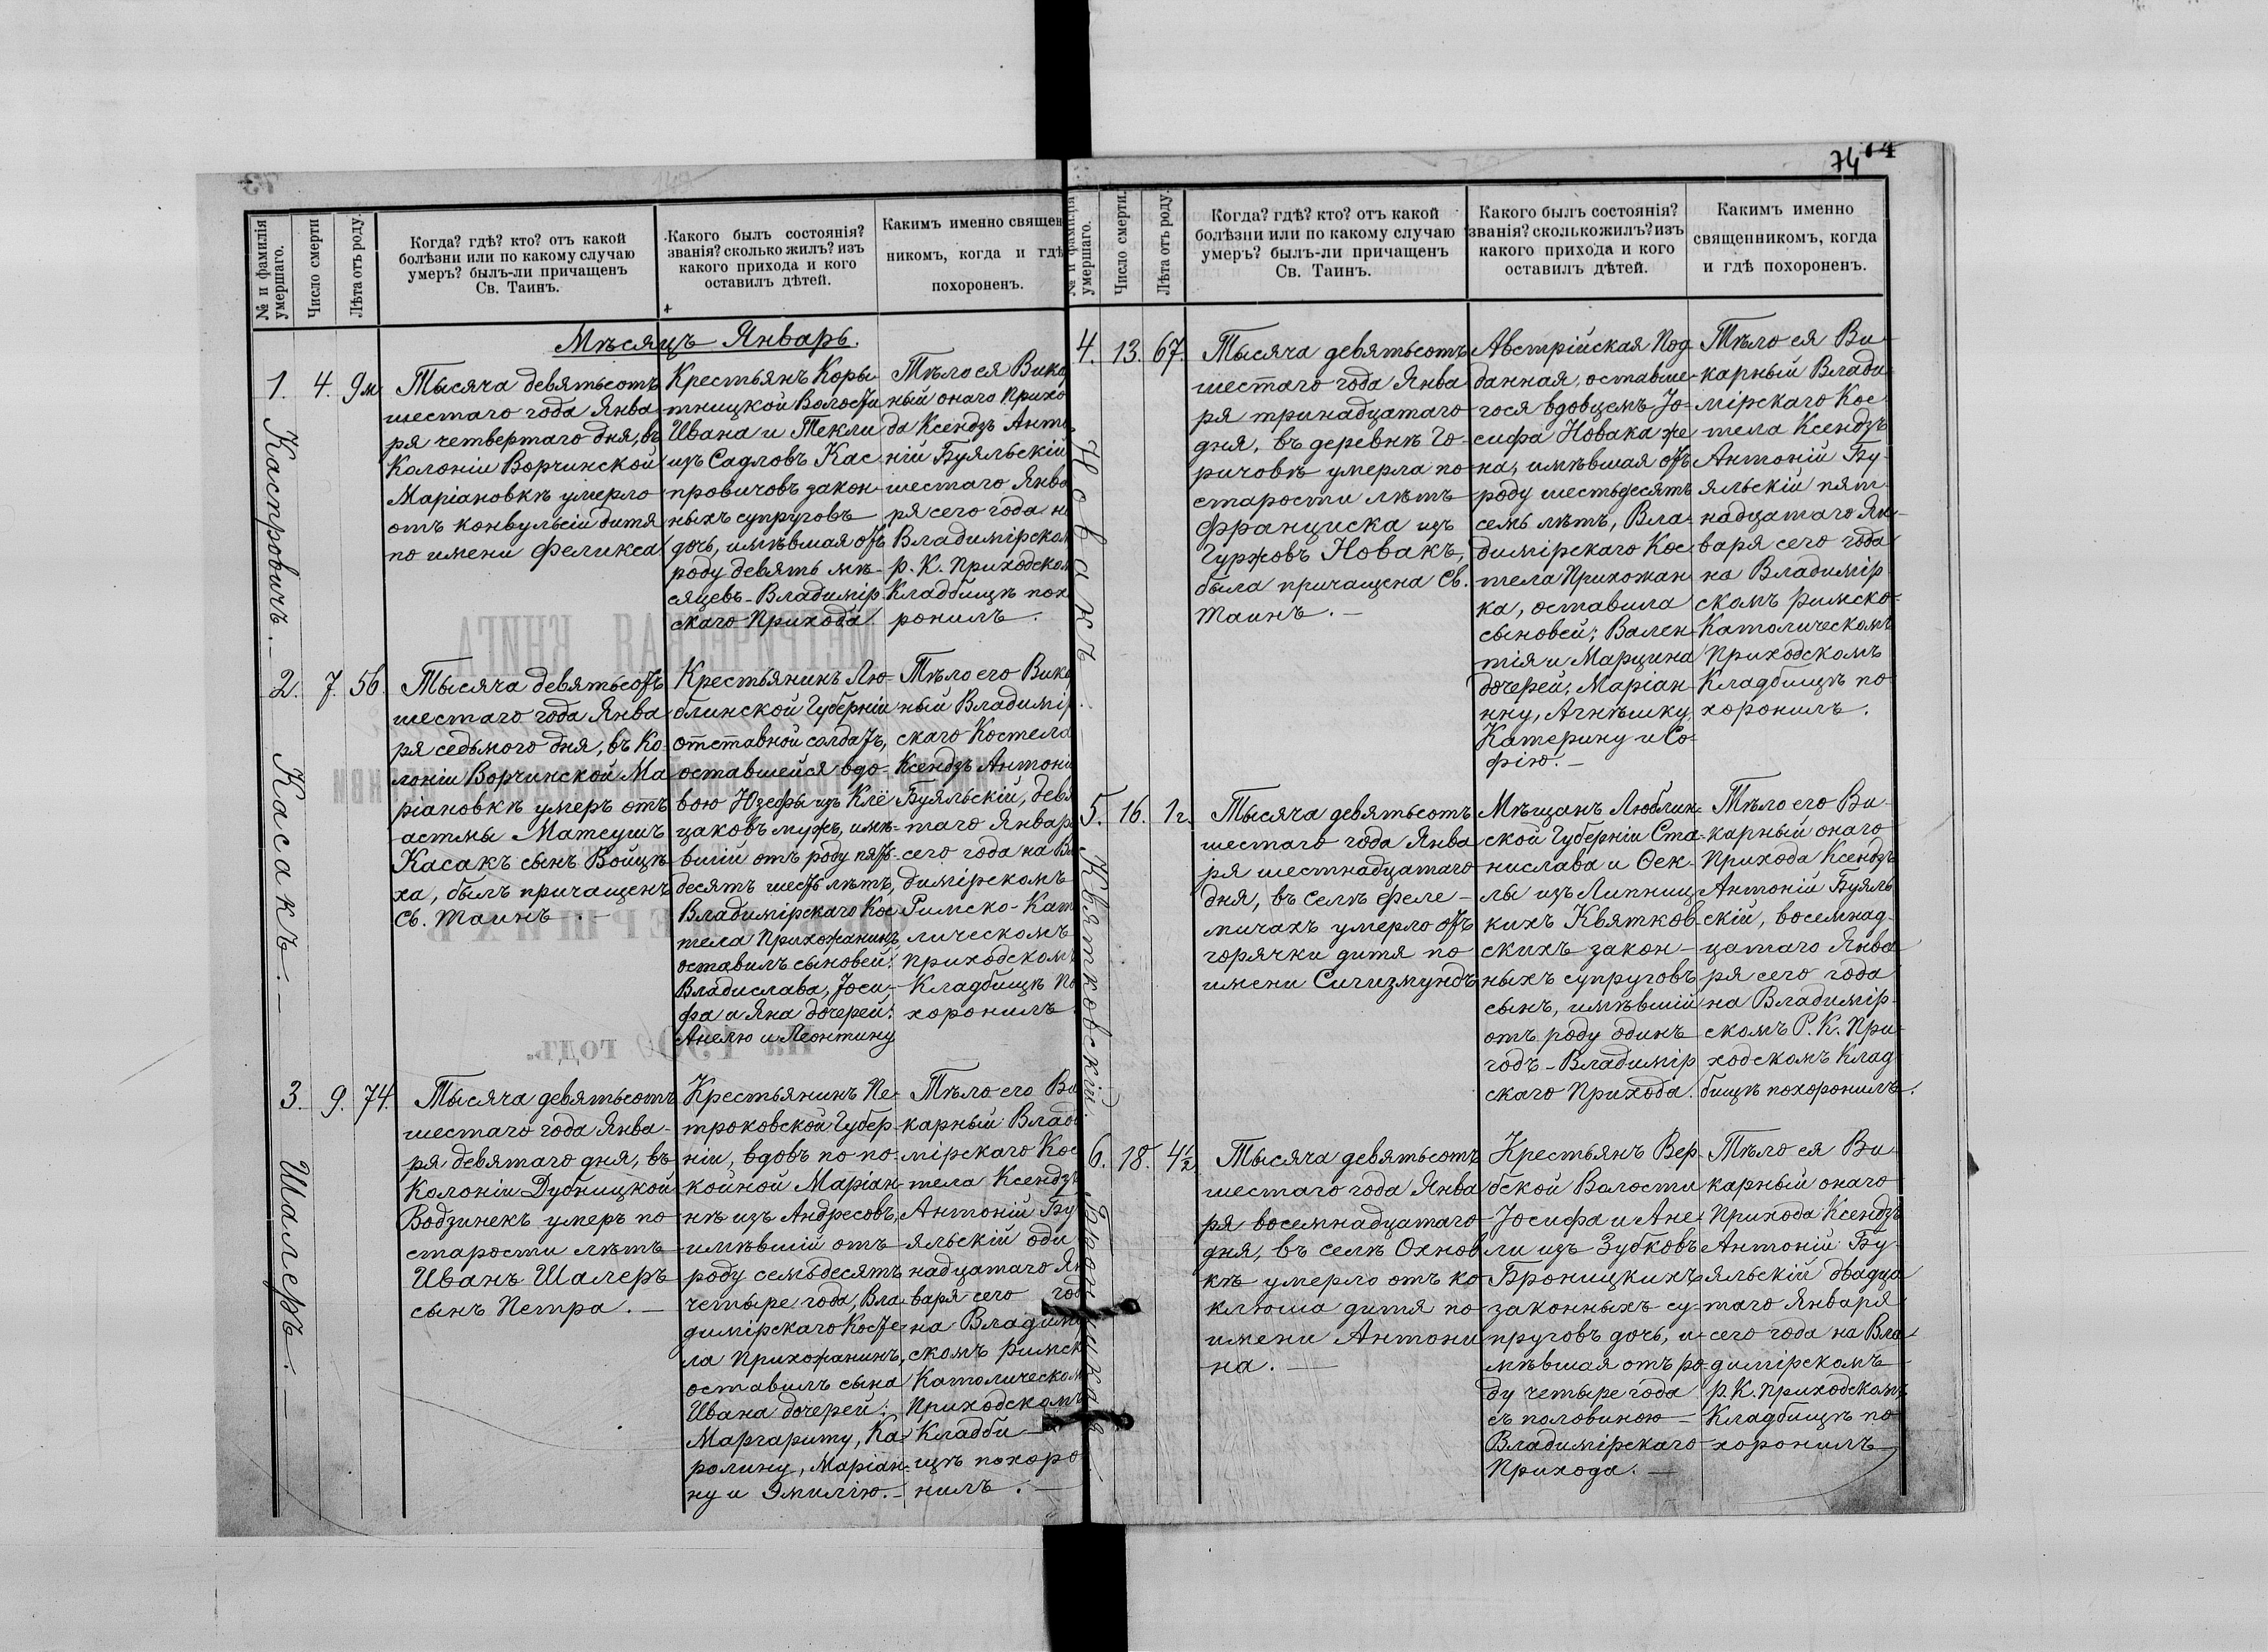 74
№ и фамилія умершаго.
Число смерти
Лѣта отъ роду.
Когда? гдѣ? кто? отъ какой
болѣзни или по какому случаю
умеръ? былъ-ли причащенъ
Св. Таинъ.
Какого былъ состоянія?
званія? сколько жилъ? изъ
какого прихода и кого
оставилъ дѣтей.
Какимъ именно священ
никомъ, когда и гдѣ
похороненъ.
Мѣсяцъ Январь.
1.
Каспровичъ.
4.
9м
Тысяча девятьсотъ
шестаго года Янва
ря четвертаго дня, въ
Колоніи Ворчинской
Маріановкѣ умерло
отъ конвульсій дитя
по имени Феликса
Крестьянъ Коры
тницкой Волости
Ивана и Текли
изъ Садловъ Кас
провичовъ закон
ныхъ супруговъ
дочь, имѣвшая отъ
роду девять мѣ-
сяцевъ - Владимір
скаго Прихода.
Тѣло ея Вика
ный онаго Прихо
да Ксендзъ Анто
ній Буяльскій
шестаго Янва
ря сего года на
Владимірском
Р. К. Приходском
Кладбищѣ пох
ронилъ.
2.
Касакъ.
7.
56.
Тысяча девятьсотъ
шестаго года Янва
ря седьмого дня, въ Ко
лоніи Ворчинской Ма
ріановкѣ умеръ отъ
астмы Матеушъ
Касакъ сынъ Войцѣ
ха, былъ причащенъ
Св. Таинъ. -
Крестьянинъ Лю-
блинской Губерніи
отставной солдатъ,
оставшейся вдо-
вою Юзефы изъ Клё
цаковъ мужъ, имѣ-
вшій отъ роду пять-
десятъ шесть лѣтъ,
Владимірскаго Кос
тела Прихожанинъ,
оставилъ сыновей:
Владислава, Іоси-
фа и Яна дочерей:
Анелю и Леонтину
Тѣло его Вика
ный Владимір
скаго Костела
Ксендзъ Антоні
Буяльскій, девя
таго Января
сего года на Вл
димірскомъ
Римско-Кат
лическомъ
приходскомъ
Кладбищѣ по
хоронилъ
3.
Шалеръ.
9.
74.
Тысяча девятьсотъ
шестаго года Янва-
ря девятаго дня, въ
Колоніи Дубницкой
Водзинекъ умеръ по
старости лѣтъ
Иванъ Шалеръ
сынъ Петра. -
Крестьянинъ Пе-
троковской Губер-
ніи, вдовъ по по-
койной Маріан-
нѣ изъ Андресовъ,
имѣвшій отъ
роду семьдесятъ
четыре года, Вла
димірскаго Косте-
ла Прихожанинъ,
оставилъ сына
Ивана дочерей:
Маргариту, Ка-
ролину, Маріан-
ну и Эмилію. -
Тѣло его Ви
карный Влади
мірскаго Кос
тела Ксендзъ
Антоній Бу
яльскій оди
надцатаго Ян
варя сего год
на Владимір
скомъ Римск
Католическом
Приходскомъ
Кладби-
щѣ похоро
нилъ. -
74
№ и фамилія умершаго.
Число смерти.
Лѣта отъ роду.
Когда? гдѣ? кто? отъ какой
болѣзни или по какому случаю
умеръ? былъ-ли причащенъ
Св. Таинъ.
Какого былъ состоянія?
званія? сколько жилъ? изъ
какого прихода и кого
оставилъ дѣтей.
Какимъ именно
священникомъ, когда
и гдѣ похороненъ.
4.
Новакъ.
13.
67.
Тысяча девятьсотъ
шестаго года Янва
ря тринадцатаго
дня, въ деревнѣ Го-
ричовѣ умерла по
старости лѣтъ
Франциска изъ
Гуржовъ Новакъ,
была причащена Св.
Таинъ. -
Австрійская Под
данная, оставше-
гося вдовцемъ Іо-
сифа Новака же
на, имѣвшая отъ
роду шестьдесятъ
семь лѣтъ, Вла-
димірскаго Кос
тела Прихожан
ка, оставила
сыновей: Вален-
тія и Марцина
дочерей: Маріан
нну, Агнѣшку,
Катерину и Со-
фію. -
Тѣло ея Ви-
карный Влади-
мірскаго Кос-
тела Ксендзъ
Антоній Бу-
яльскій пят-
надцатаго Ян-
варя сего года
на Владимір
скомъ Римско-
Католическомъ
Приходскомъ
Кладбищѣ по
хоронилъ.
5.
Квятковскій.
16.
1г.
Тысяча девятьсотъ
шестаго года Янва
ря шестнадцатаго
дня, въ селѣ Феле-
мичахъ умерло отъ
горячки дитя по
имени Сигизмундъ
Мѣщанъ Люблин-
ской Губерніи Ста-
нислава и Ѳек-
лы изъ Липниц-
кихъ Квятков-
скихъ закон-
ныхъ супруговъ
сынъ, имѣвшій
отъ роду одинъ
годъ - Владимір
скаго Прихода.
Тѣло его Ви-
карный онаго
Прихода Ксендзъ
Антоній Буяль
скій, восемнад-
цатаго Янва
ря сего года
на Владимір-
скомъ Р. К. При-
ходскомъ Клад
бищѣ похоронилъ.
6.
Броницкая
18.
4½
Тысяча девятьсотъ
шестаго года Янва
ря восемнадцатаго
дня, въ селѣ Охнов
кѣ умерло отъ ко
клюша дитя по
имени Антони
на. -
Крестьянъ Вер-
бской Волости
Іосифа и Ане
ли изъ Зубковъ
Броницкихъ
законныхъ су-
пруговъ дочь, и-
мѣвшая отъ ро-
ду четыре года
съ половиною -
Владимірскаго
Прихода. -
Тѣло ея Ви-
карный онаго
Прихода Ксендзъ
Антоній Бу-
яльскій двадца
таго Января
сего года на Вла
димірскомъ
Р. К. Приходскомъ
Кладбищѣ по
хоронилъ